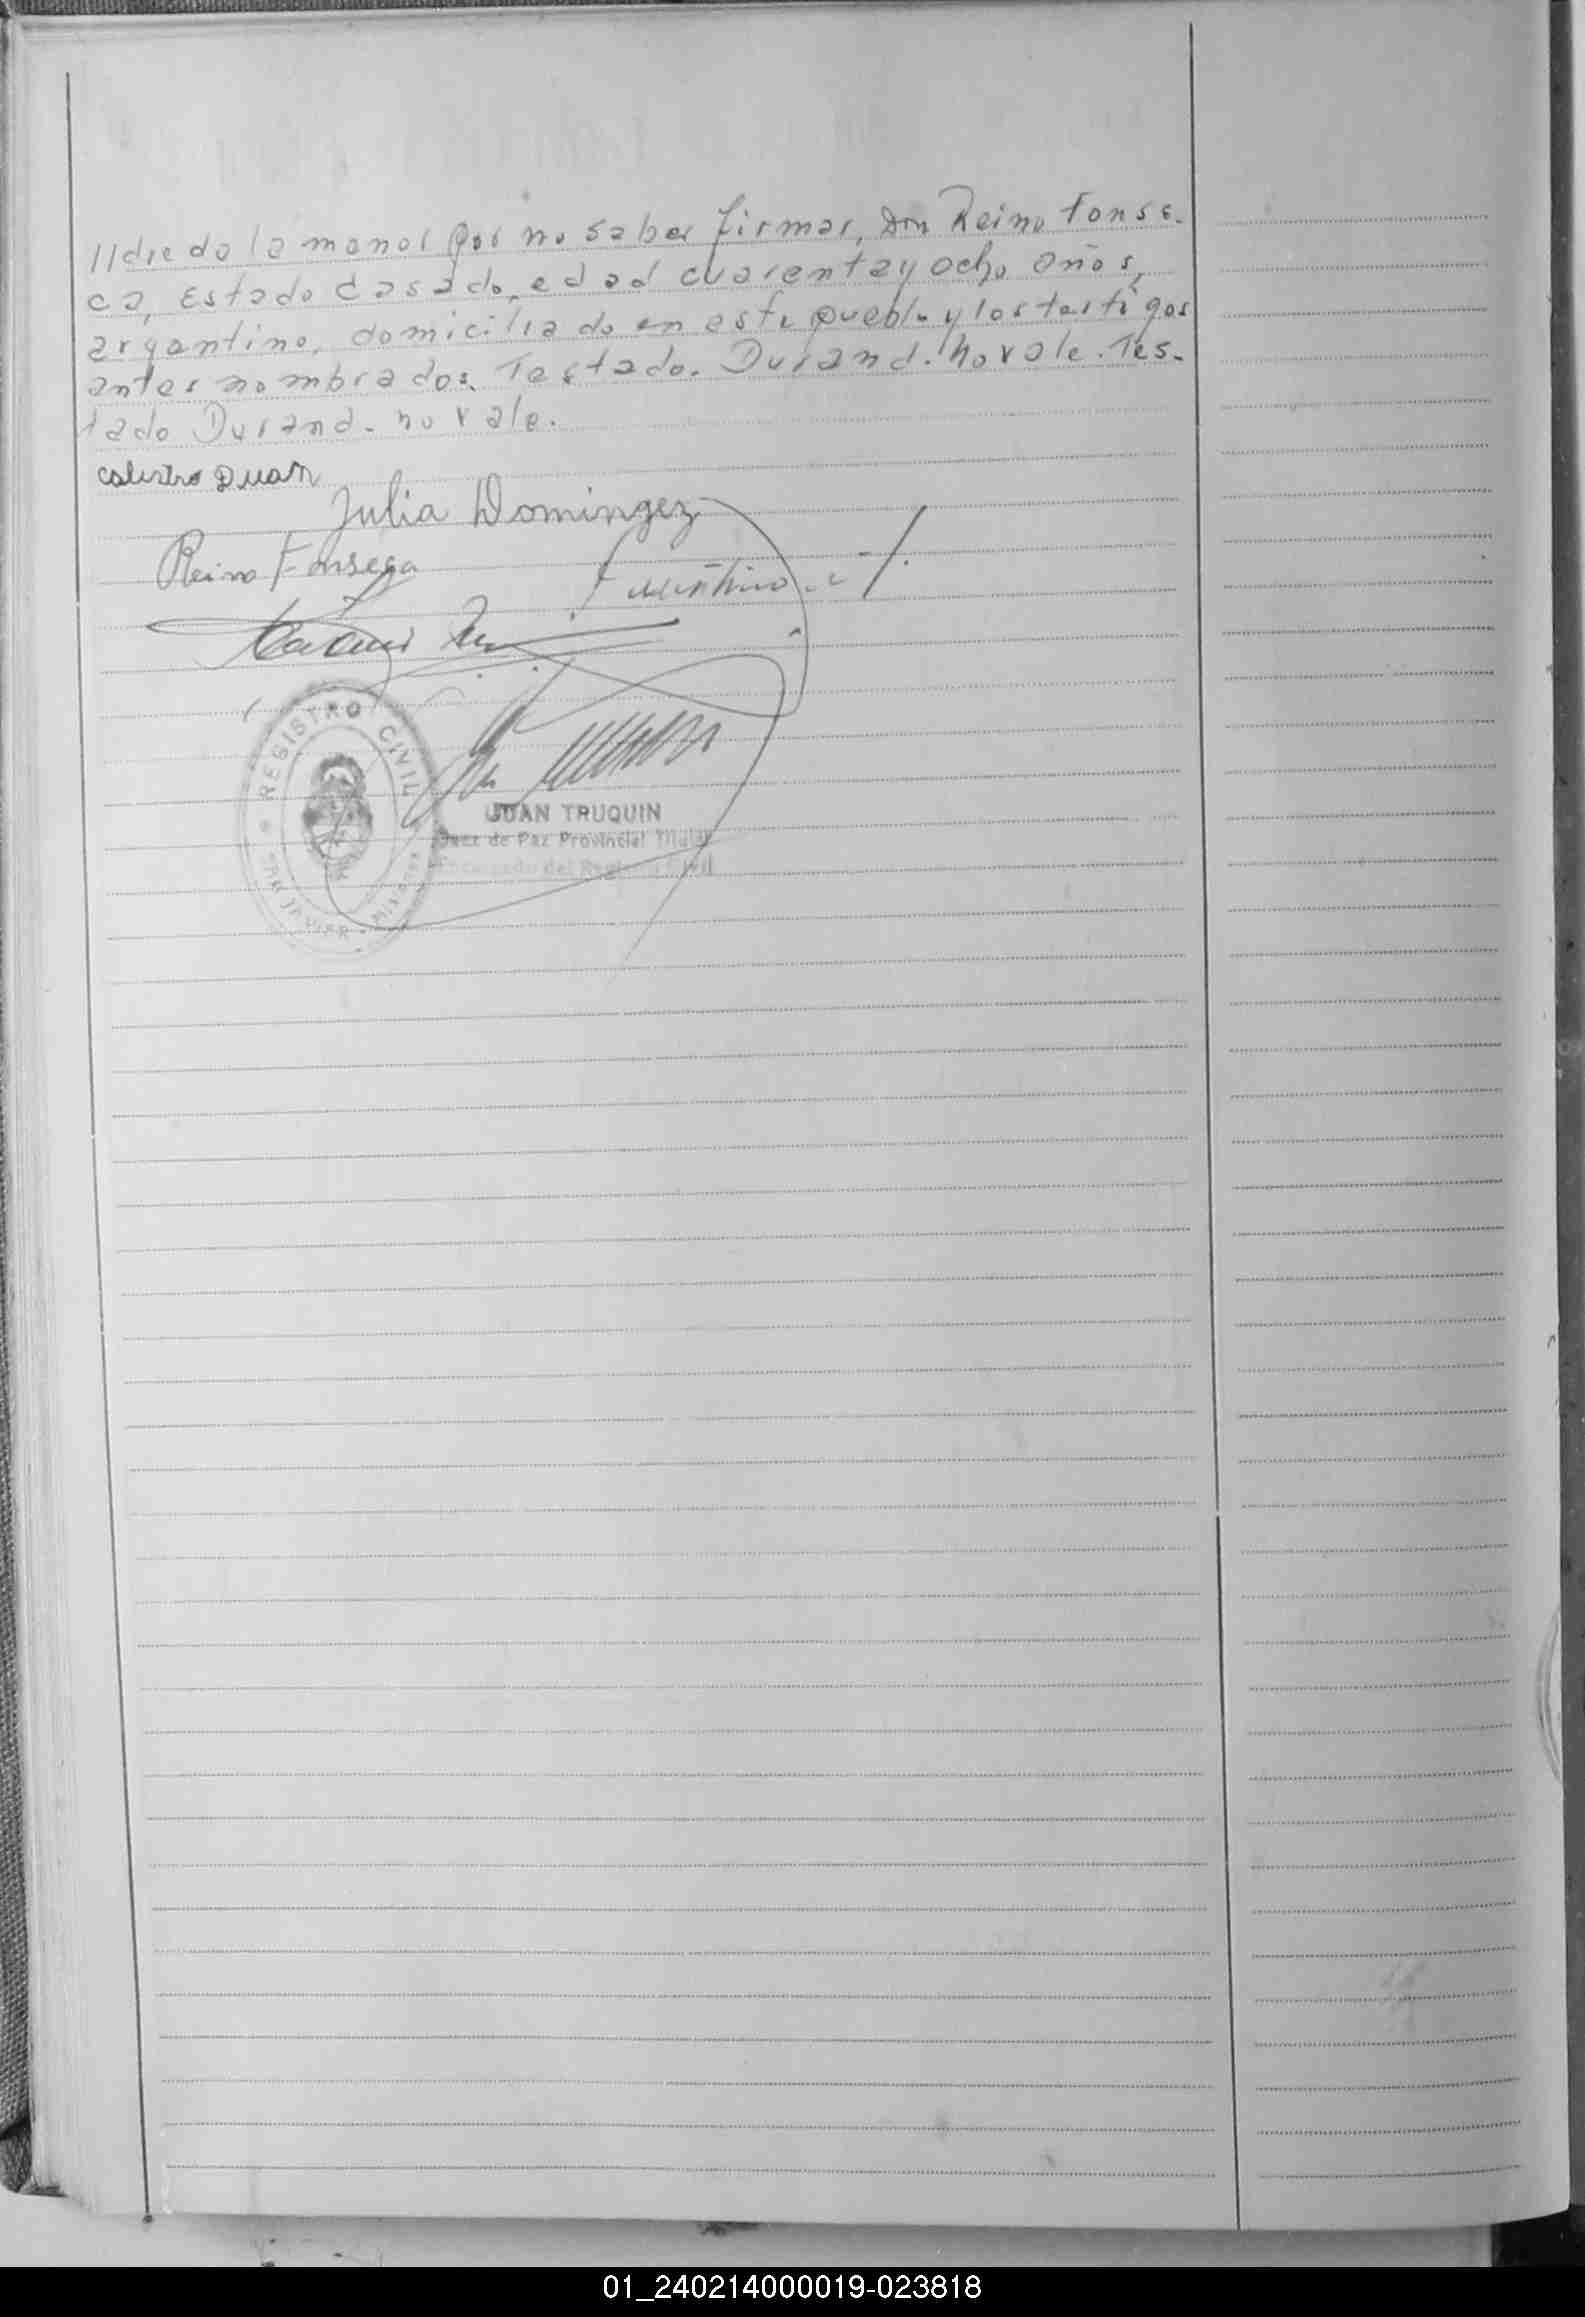 //die de la menor por no saber firmar, Don Reino Fonse-
ca, Estado casado, edad cuarenta y ocho años,
argentino, domiciliado en este pueblo y los testigos
antes nombrados. Testado. Durand. no vale. Tes-
tado Durand. no vale.
Calistro Duan
Julia Domingez
Reino Fonsega
REGISTRO CIVIL
SAN JAVIER - MISIONES
JUAN TRUQUIN
Juez de Paz Provincial Titular
Encargado del Registro Civil
01_240214000019-023818